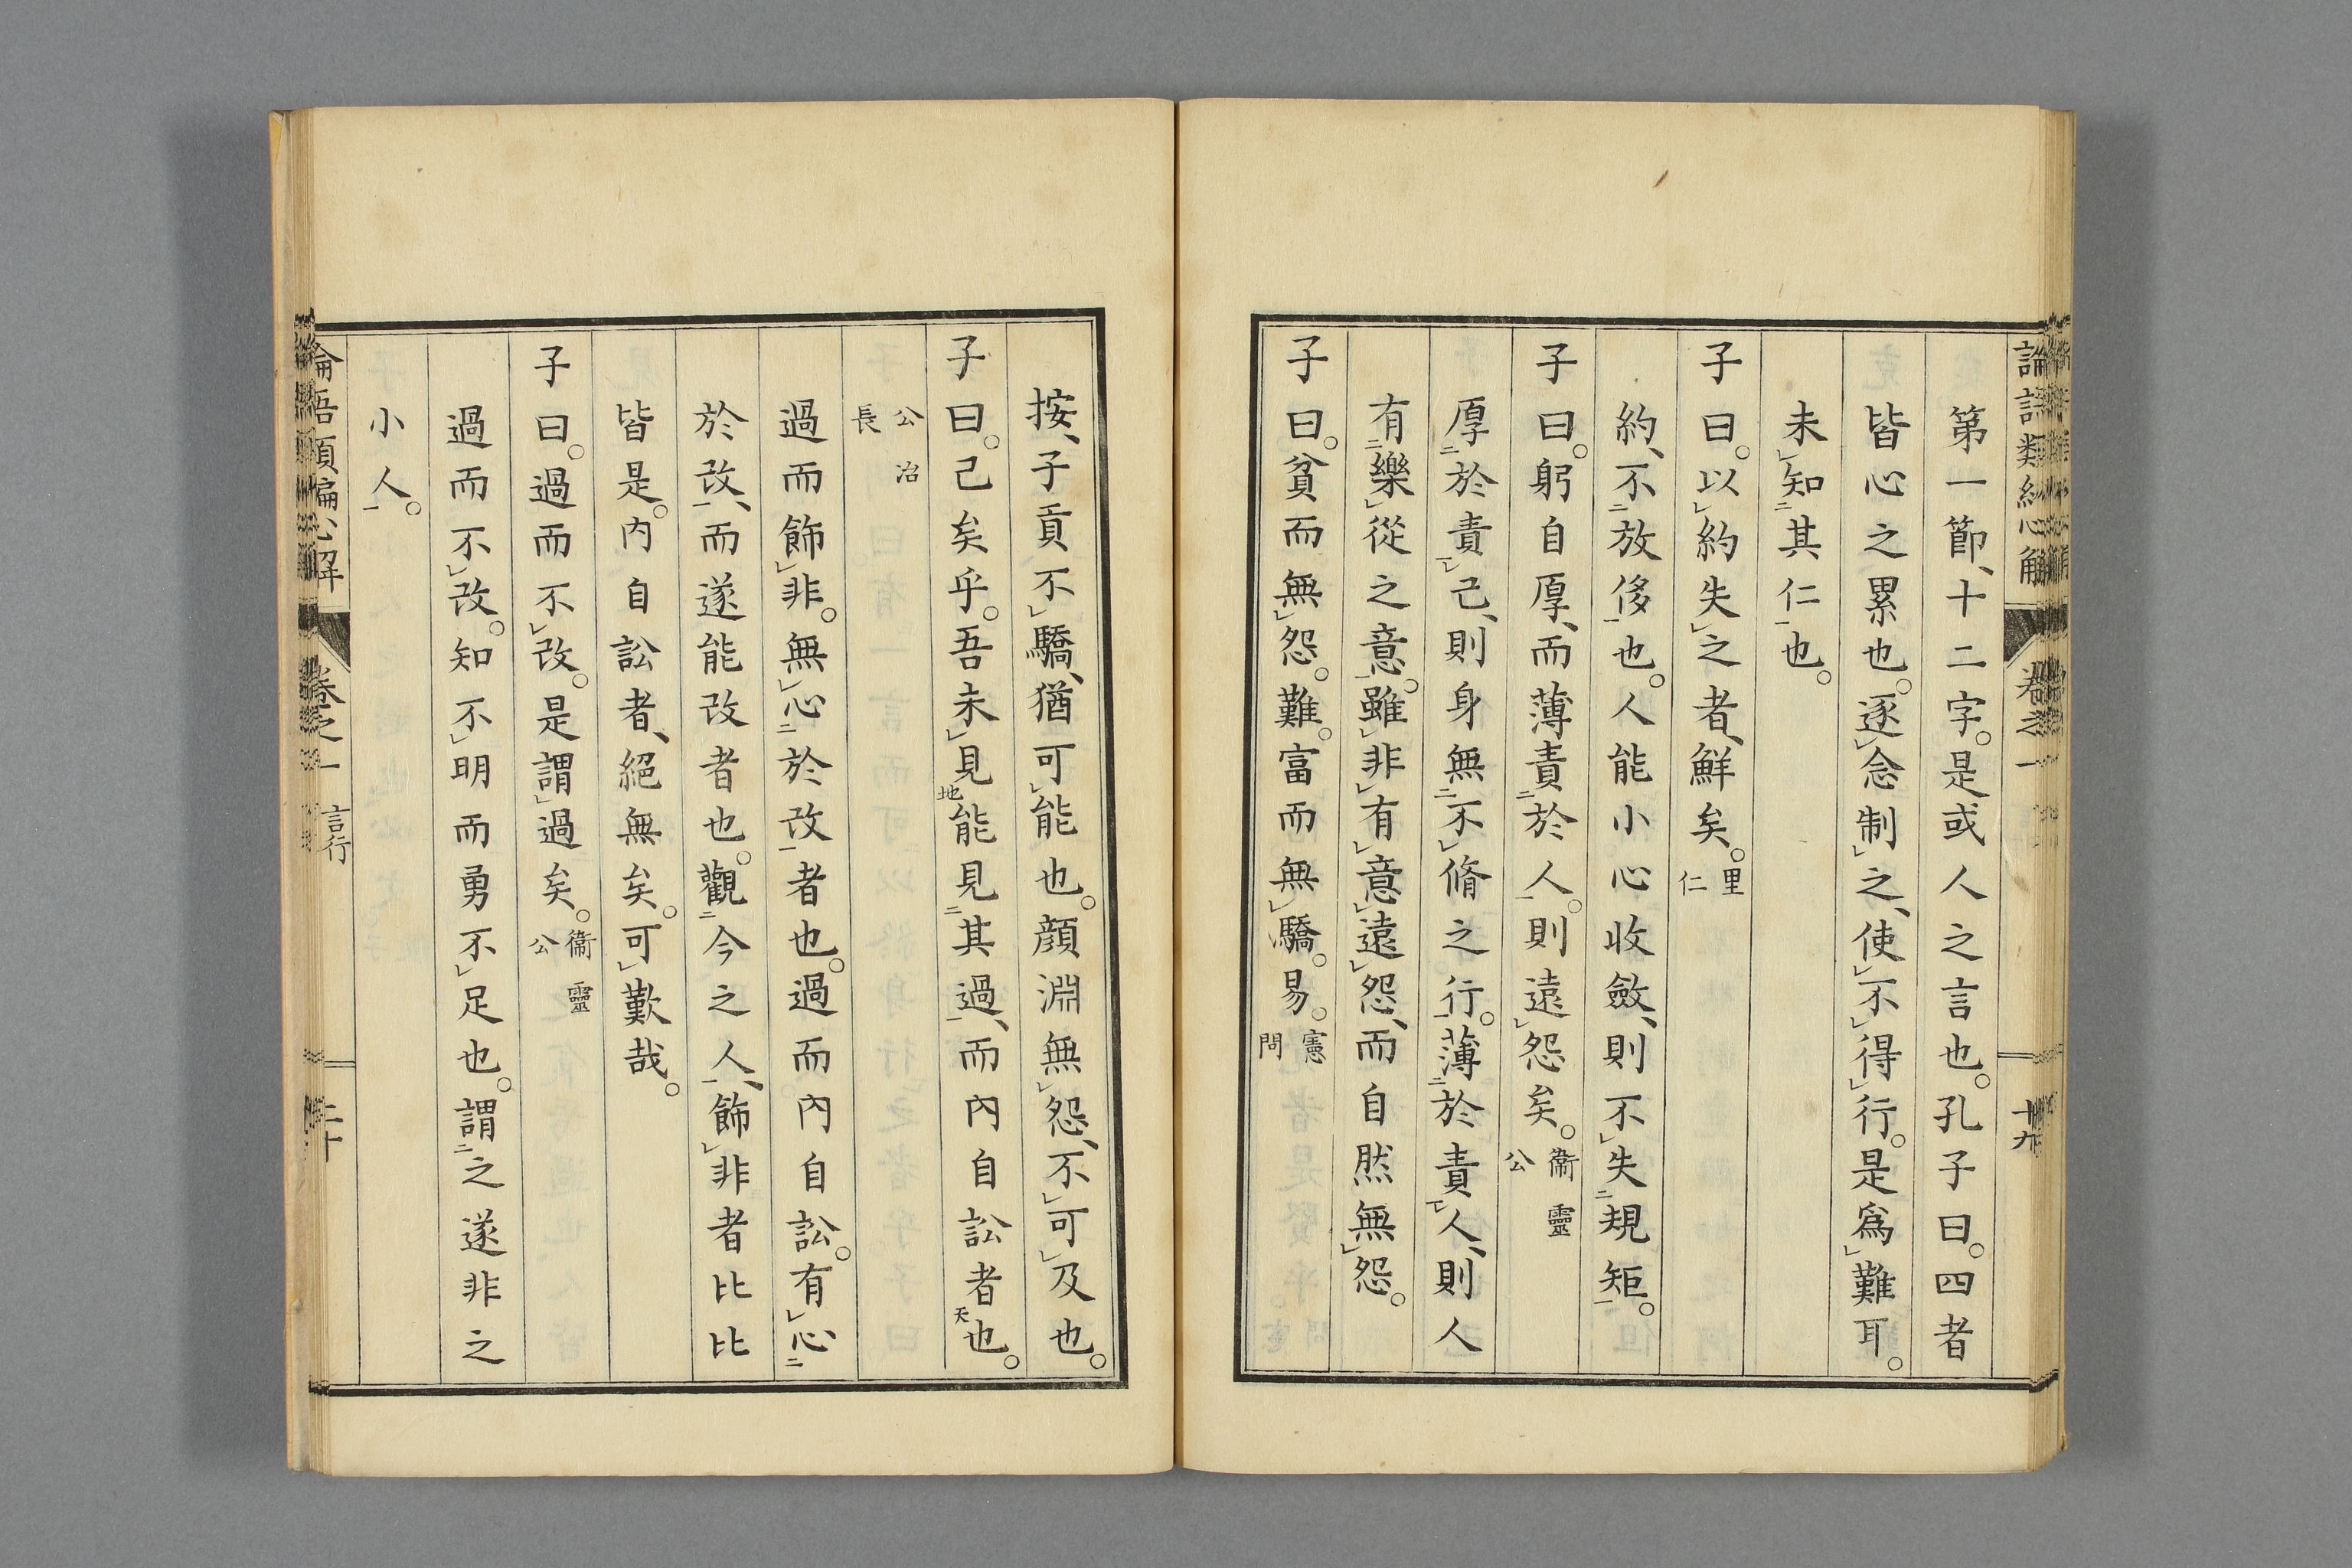 第一節、十二字。是或人之言也。孔子曰。四者
皆心之累也。逐念制之、使不得行。是爲難耳。
未知其仁也。
子曰。以約失之者、鮮矣。里仁
約、不放侈也。人能小心收斂、則不失規矩。
子曰。躬自厚、而薄責於人。則遠怨矣。衞靈公
厚於責己、則身無不脩之行。薄於責人、則人
有樂從之意。雖非有意遠怨、而自然無怨。
子曰。貧而無怨。難。富而無驕。易。憲問
按、子貢不驕、猶可能也。顔淵無怨、不可及也。
子曰。已矣乎。吾未見能見其過、而內自訟者也。
公冶長
過而飾非。無心於改者也。過而內自訟。有心
於改、而遂能改者也。觀今之人、飾非者比比
皆是。內自訟者、絕無矣。可歎哉。
子曰。過而不改。是謂過矣。衞靈公
過而不改。知不明而勇不足也。謂之遂非之
小人。
卷之一 言行 二十